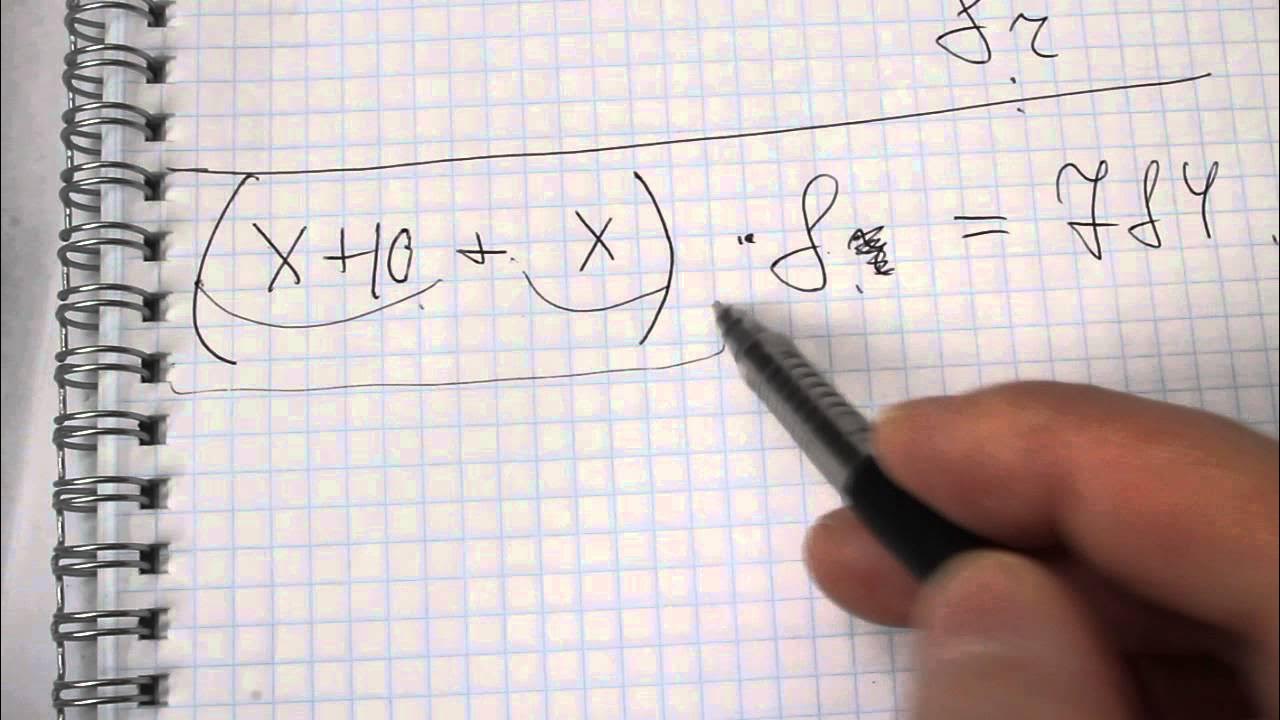 8 ч.
(X + 10 + X) · 8 = 784